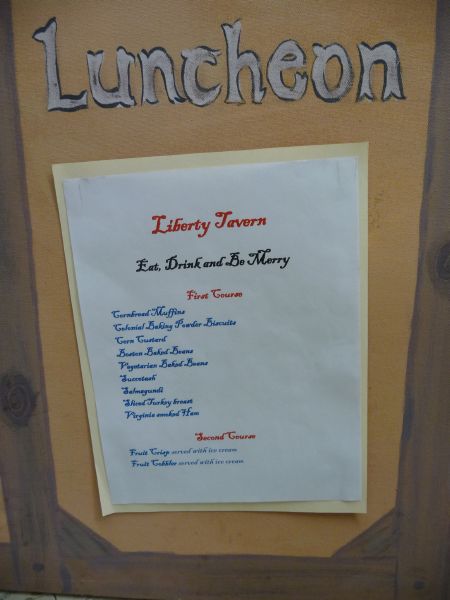 Luncheon
Liberty Tavern
Eat, Drink and Be Merry
First Course
Cornbread Muffins
Colonial Baking Powder Biscuits
Corn Custard
Boston Baked Beans
Vegetarian Baked Beans
Succotash
Salmagundi
Sliced Turkey breast
Virginia smoked Ham
Second Course
Fruit Crisp served with ice cream
Fruit Cobbler served with ice cream